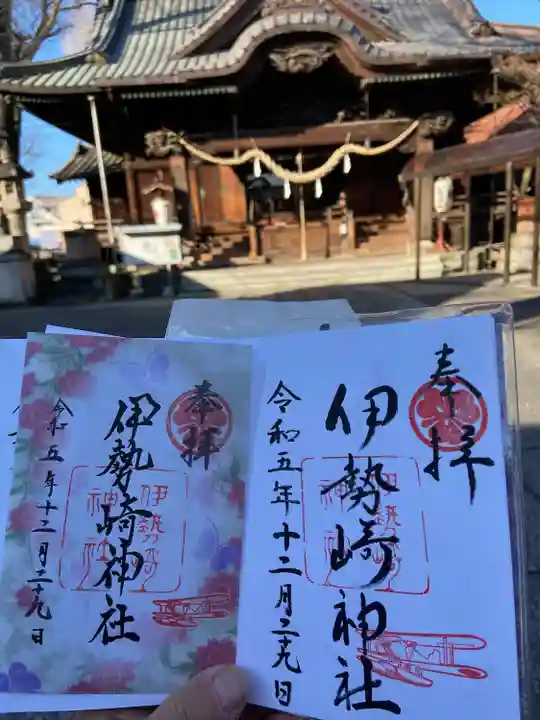 奉拝
伊勢崎神社
令和五年十二月二十九日
伊勢崎神社
奉拝
伊勢崎神社
令和五年十二月二十九日
伊勢崎神社